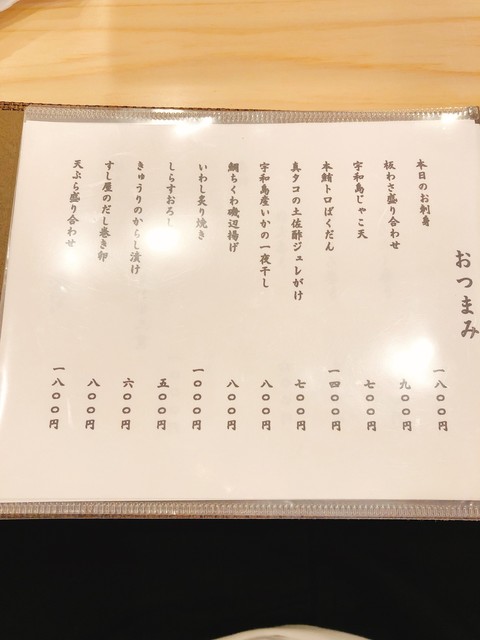 おつまみ
本日のお刺身 一八〇〇円
板わさ盛り合わせ 九〇〇円
宇和島じゃこ天 七〇〇円
本鮪トロばくだん 一四〇〇円
真タコの土佐酢ジュレがけ 七〇〇円
宇和島産いかの一夜干し 八〇〇円
鯛ちくわ磯辺揚げ 八〇〇円
いわし炙り焼き 一〇〇〇円
しらすおろし 五〇〇円
きゅうりのからし漬け 六〇〇円
すし屋のだし巻き卵 八〇〇円
天ぷら盛り合わせ 一八〇〇円